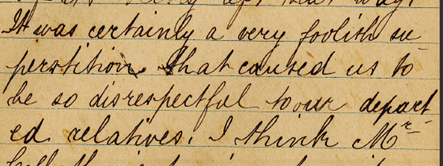 It was certainly a very foolish su
perstition that caused us to
be so disrespectful to our depart
ed relatives. I think Mr